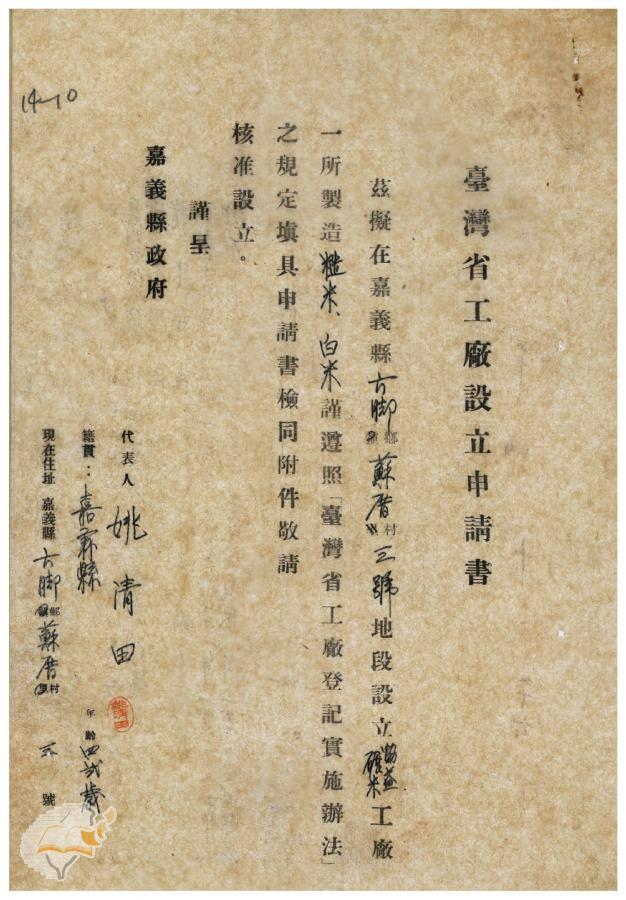 14-10
臺灣省工廠設立申請書
茲擬在嘉義縣六脚鄉鎮蘇厝村三號地段設立協益碾米工廠
一所製造糙米、白米謹遵照「臺灣省工廠登記實施辦法」
之規定塡具申請書檢同附件敬請
核准設立。
謹呈
嘉義縣政府
代表人 姚清田
籍貫：嘉義縣 年齡四弍歲
現在住址 嘉義縣六脚鄉鎮蘇厝村里 三 號